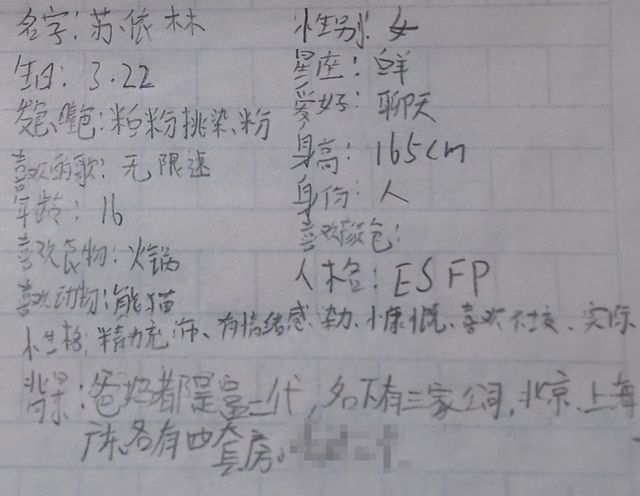 名字：苏依林
性别：女
生日：3.22
星座：鲜
发色、瞳色：粉挑染、粉
爱好：聊天
喜欢的歌：无限速
身高：165cm
年龄：16
身份：人
喜欢颜色：
喜欢食物：火锅
人格：ESFP
喜欢动物：熊猫
性格：精力充沛、有情绪感、慷慨、喜欢社交、实际
背景：爸妈都是富二代，名下有三家公司，北京、上海
广东各有四套房。